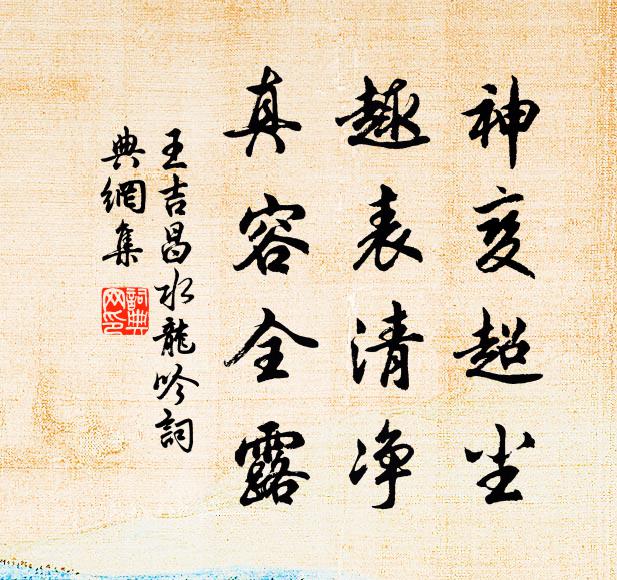 神变超尘
趣表清净
真容全露
王吉昌水龍吟詞
典網集
詞典网印